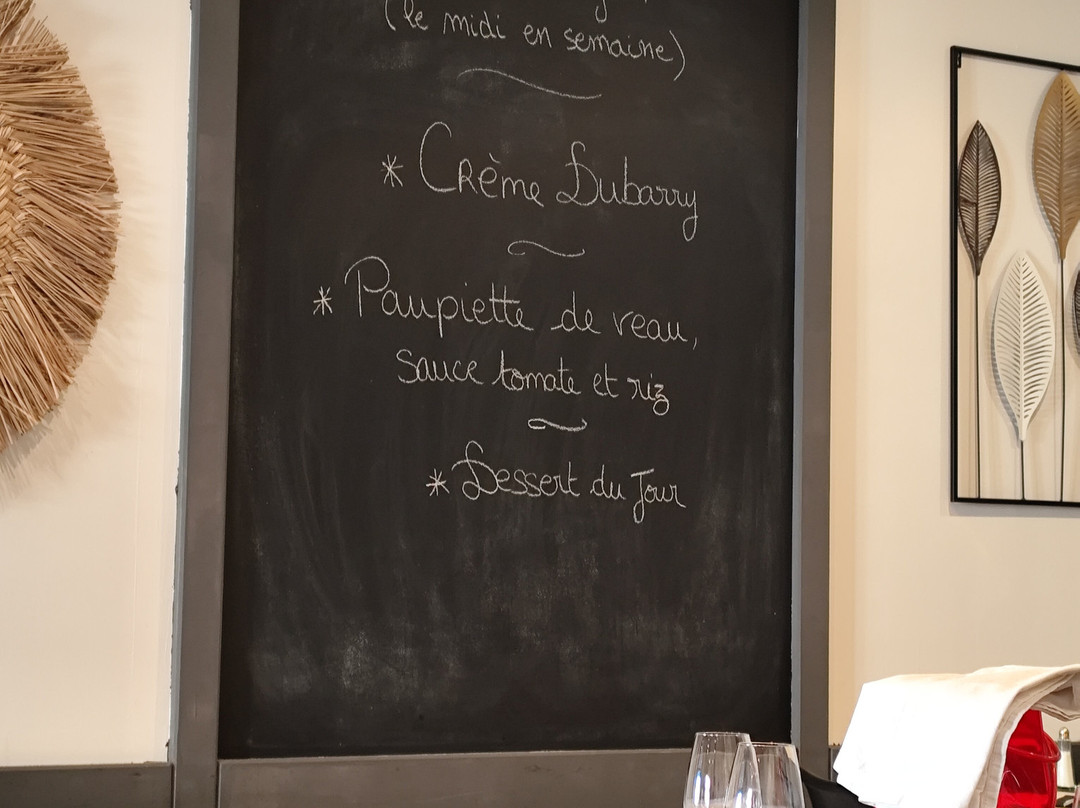 (le midi en semaine)
* Crème Dubarry
* Paupiette de veau,
sauce tomate et riz
* Dessert du Jour